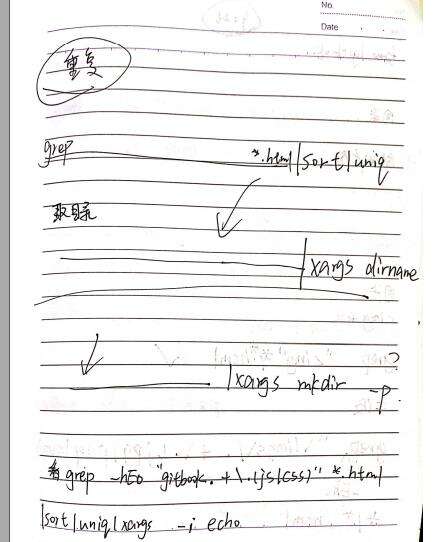 No.
Date
重复
grep ———— *.html|sort|uniq
取目录
———— |xargs dirname
———— |xargs mkdir -p ?
grep -hEo "gitbook.+\.(js|css)" *.html
|sort|uniq|xargs -i echo